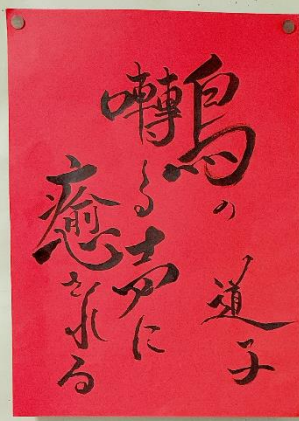 鳥の
囀る声に
癒される
道子